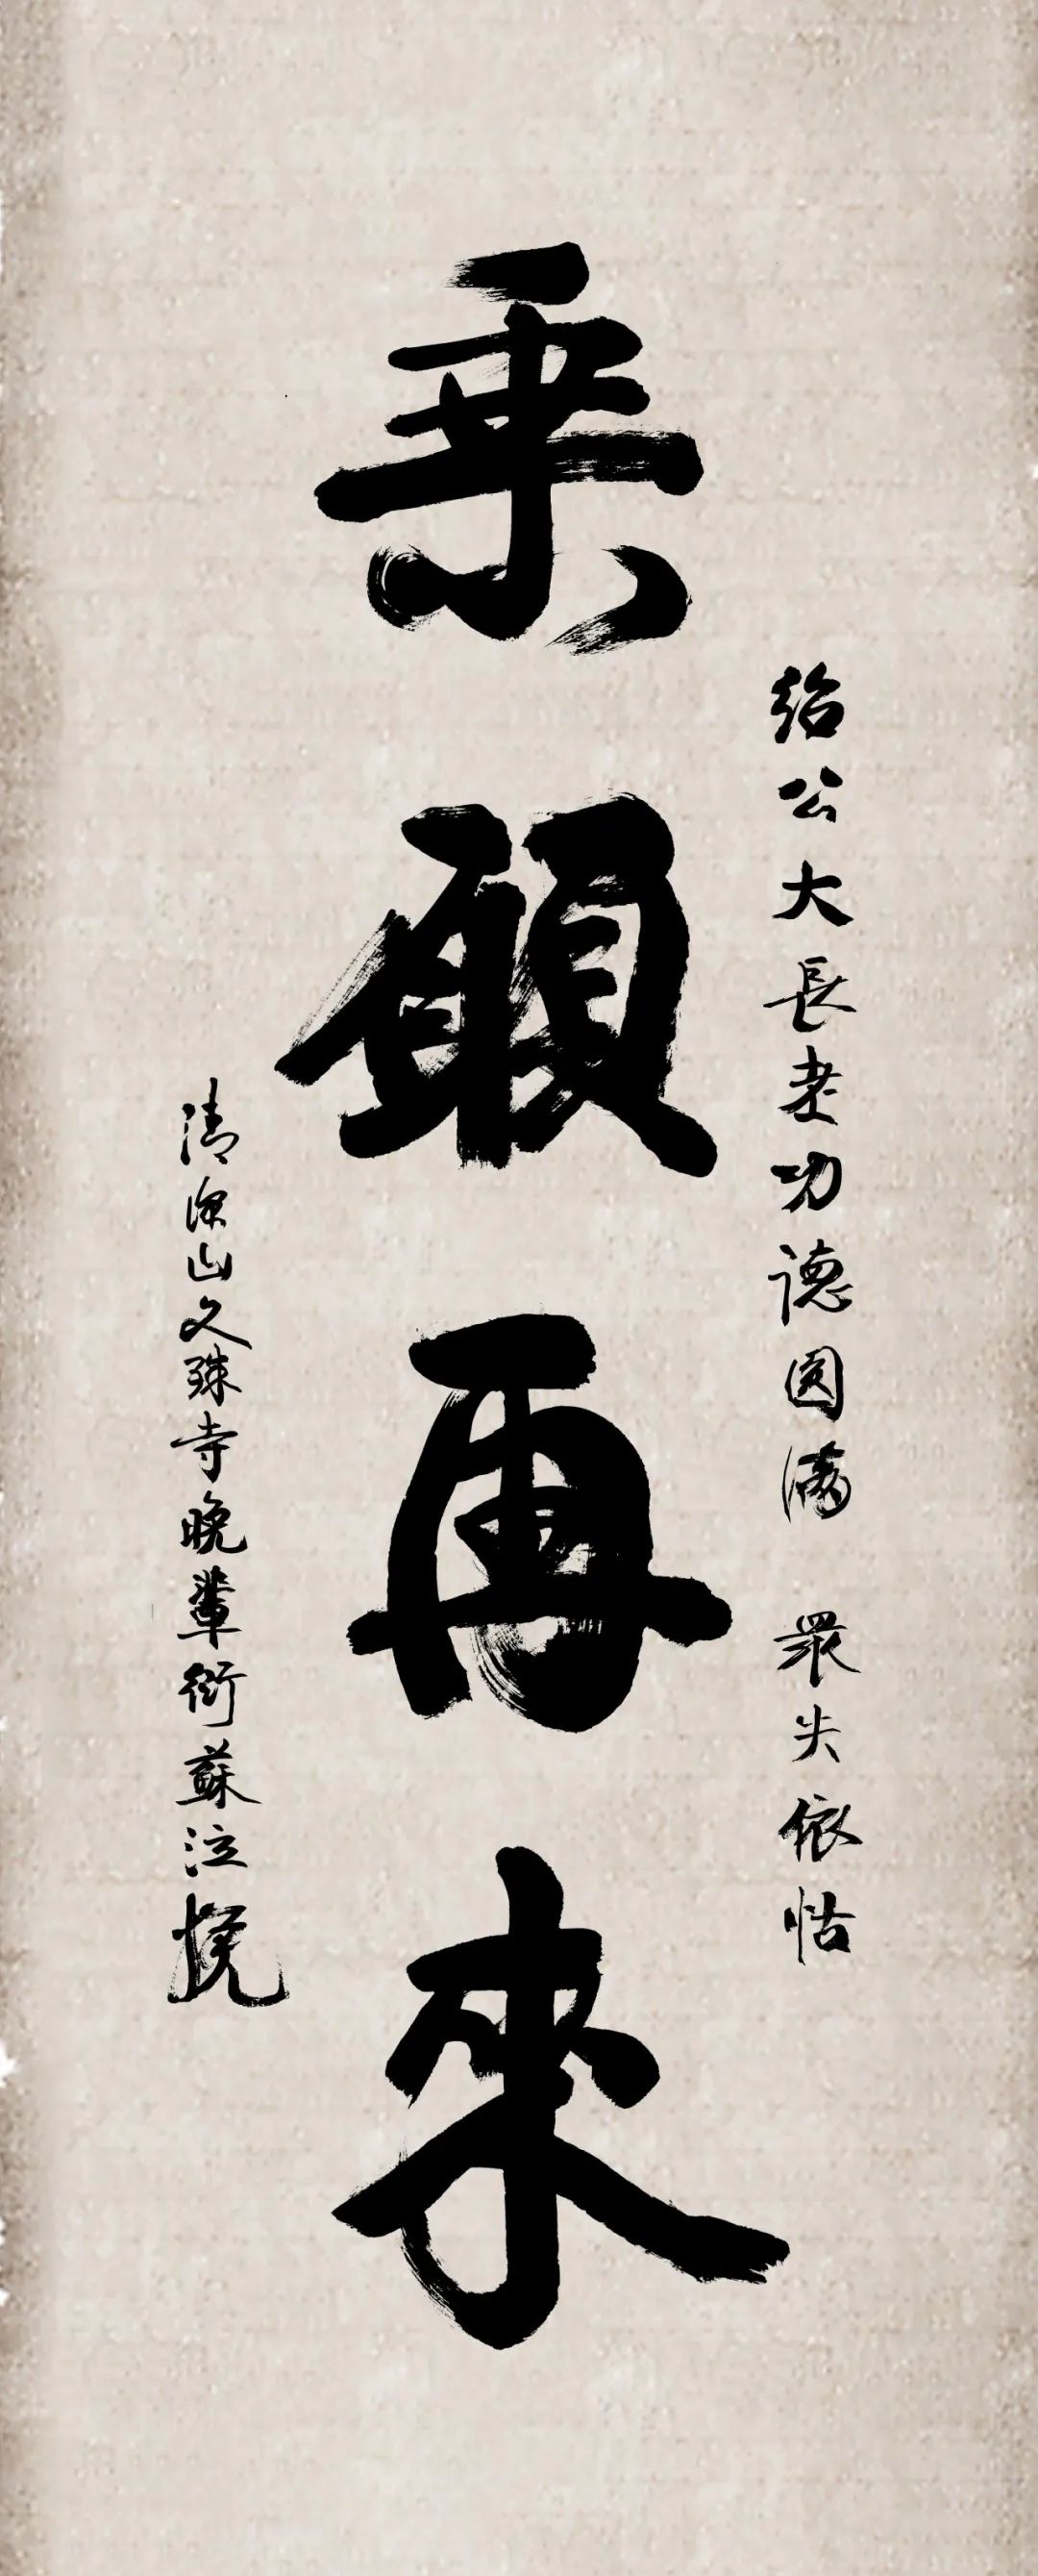 紹公大長老功德圓滿 眾失依怙
乗願再來
清凉山文殊寺晚輩衍蘇泣挽